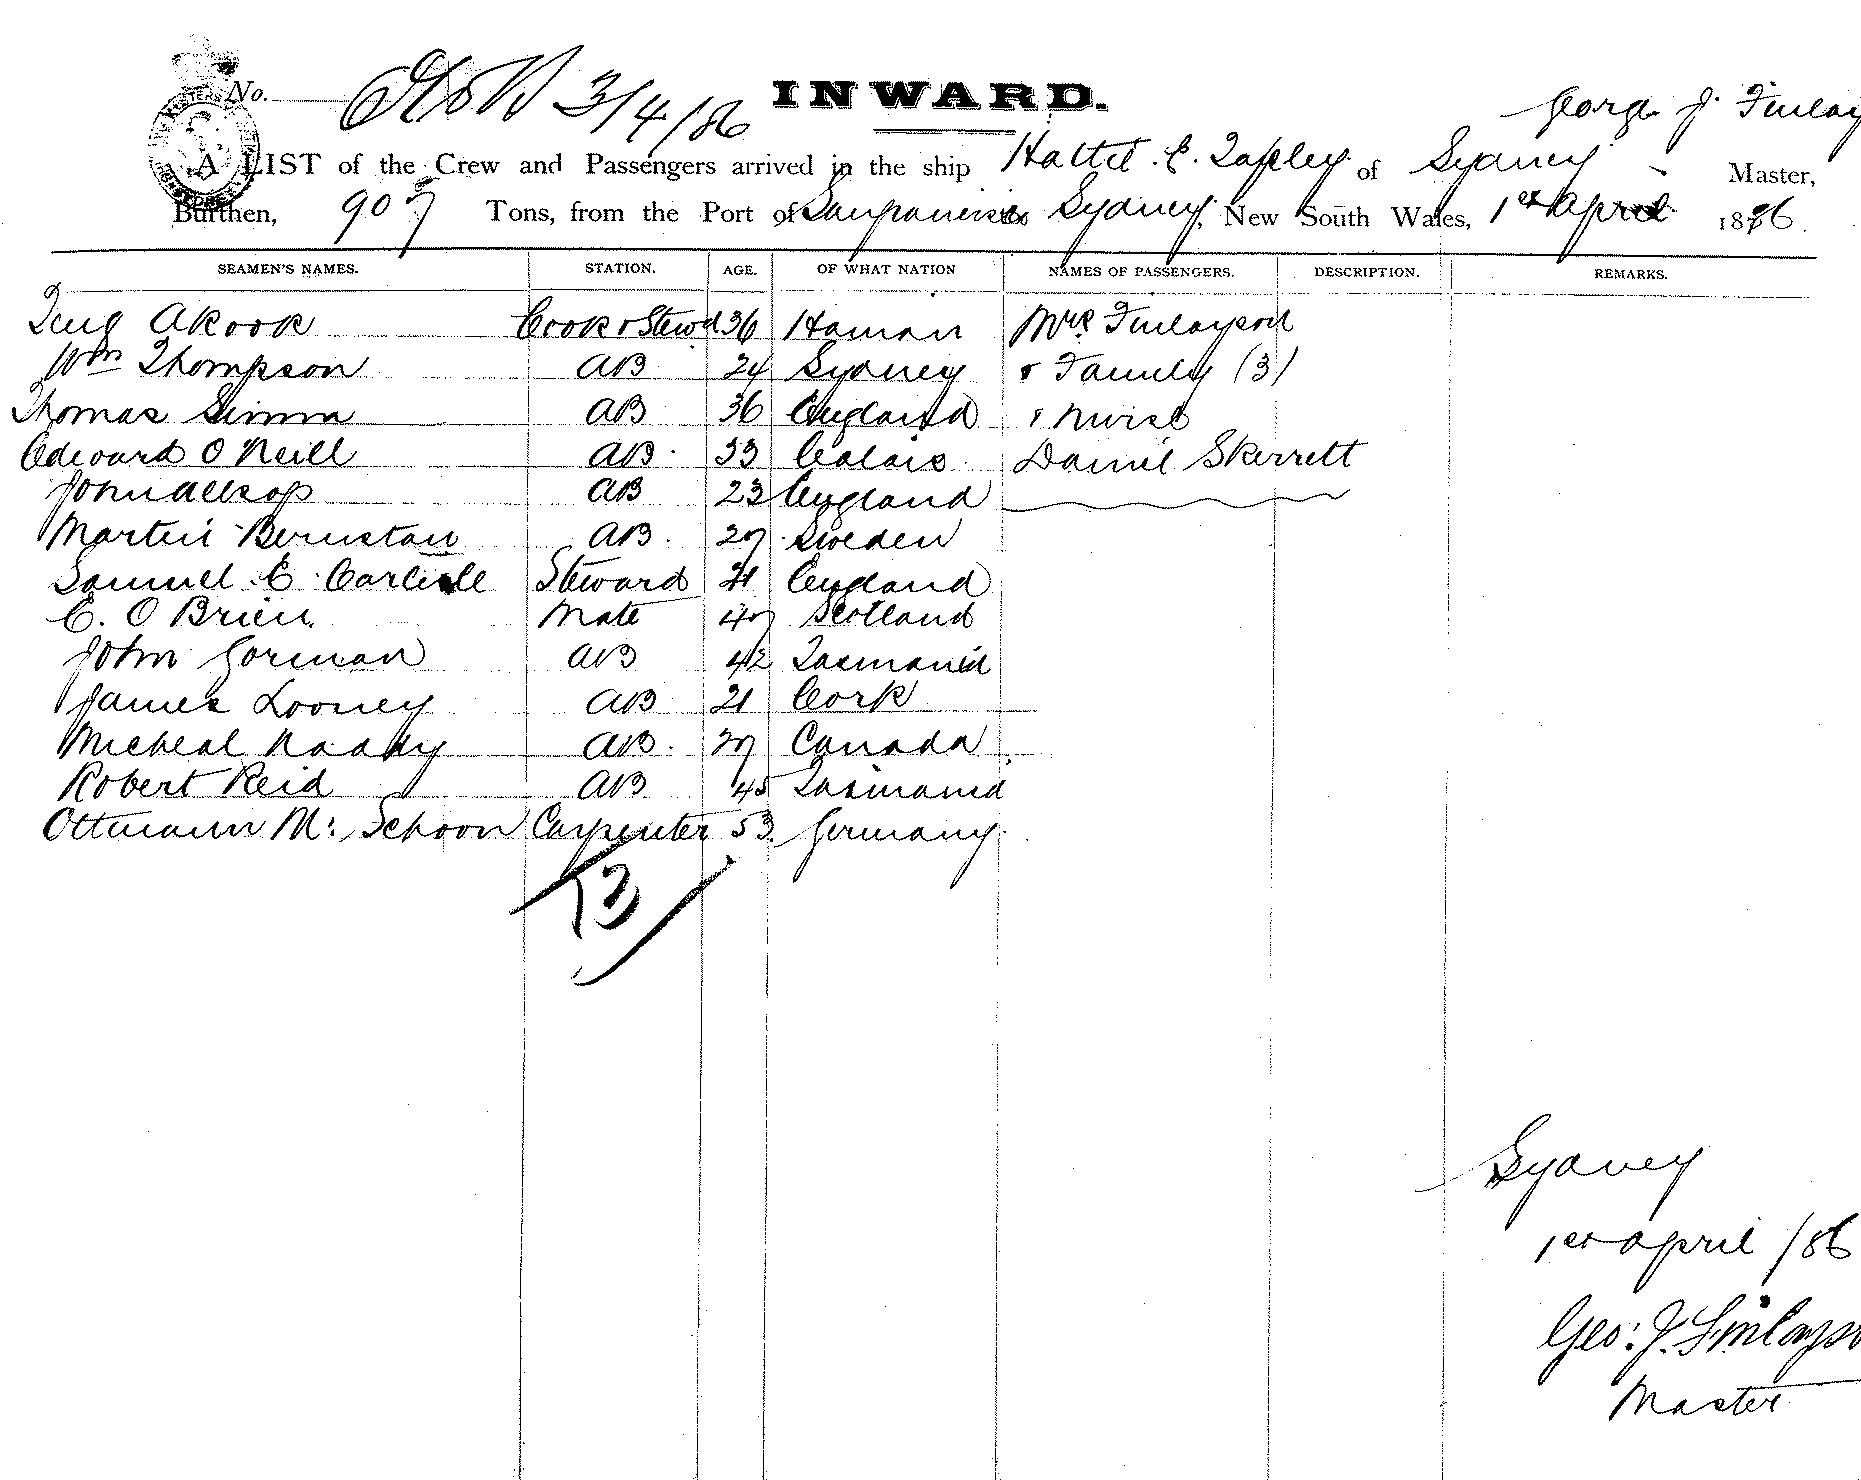 No. 3/4/86 INWARD.
George J. Finlay
A LIST of the Crew and Passengers arrived in the ship Hattie E. Tapley of Sydney Master,
Burthen, 907 Tons, from the Port of Sanfrancisco to Sydney, New South Wales, 1st April 1886
SEAMEN'S NAMES. STATION. AGE. OF WHAT NATION NAMES OF PASSENGERS. DESCRIPTION. REMARKS.
Akook Cook & Stewd 36 Mrs Finlayson
Wm Thompson AB 24 Sydney & Family (3)
Thomas Simm AB 36 England & Nurse
Edward O'Neill AB 33 Calais Daniel Skerrett
John Allsop AB 23 England
Martin Bernstan AB 27 Sweden
Samuel E Carlisle Steward 21 England
C. O Brien Mate 47 Scotland
John Gorman AB 42 Tasmania
James Looney AB 21 Cork
Micheal Naddy AB 27 Canada
Robert Reid AB 45 Tasmania
Ottmann M: Schoon Carpenter 53 Germany
13
Sydney
1st April /86
Geo: J. Finlayso
Master